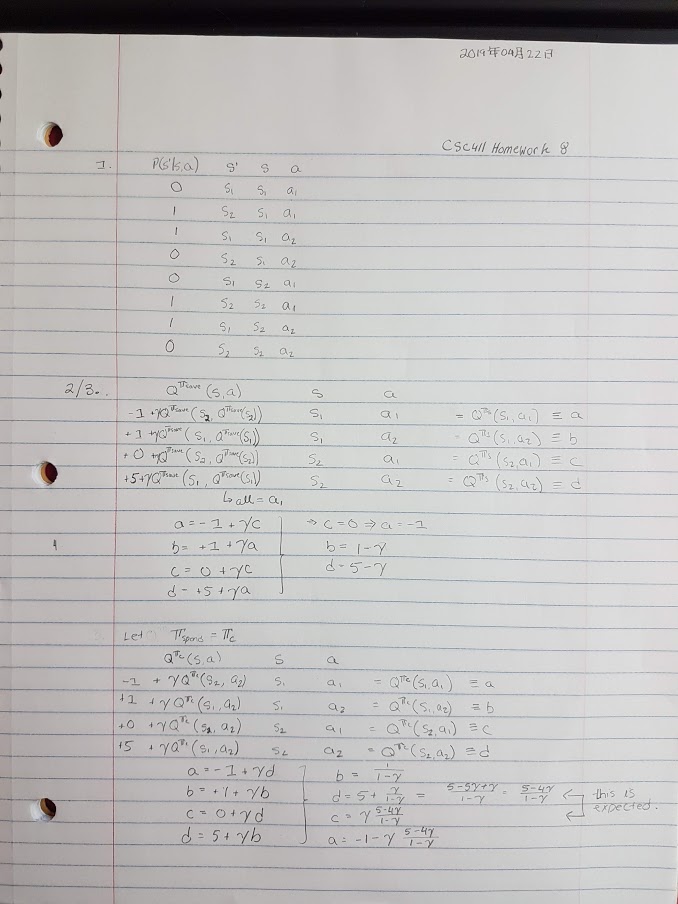 2019年04月22日
CSC411 Homework 8
1. P(s'|s,a) s' s a
0 s₁ s₁ a₁
1 s₂ s₁ a₁
1 s₁ s₁ a₂
0 s₂ s₁ a₂
0 s₁ s₂ a₁
1 s₂ s₂ a₁
1 s₁ s₂ a₂
0 s₂ s₂ a₂
2/3. Q^πsave (s,a) s a
-1 + γQ^πsave (s₂, Q^πsave(s₂)) s₁ a₁ = Q^πs(s₁,a₁) ≡ a
+1 + γQ^πsave (s₁, Q^πsave(s₁)) s₁ a₂ = Q^πs(s₁,a₂) ≡ b
+0 + γQ^πsave (s₂, Q^πsave(s₂)) s₂ a₁ = Q^πs(s₂,a₁) ≡ c
+5 + γQ^πsave (s₁, Q^πsave(s₁)) s₂ a₂ = Q^πs(s₂,a₂) ≡ d
↳ all = a₁
a = -1 + γc ⇒ c = 0 ⇒ a = -1
b = +1 + γa b = 1 - γ
c = 0 + γc d = 5 - γ
d = +5 + γa
Let π_spend = π_c
Q^πc(s,a) s a
-1 + γQ^πc(s₂, a₂) s₁ a₁ = Q^πc(s₁,a₁) ≡ a
+1 + γQ^πc(s₁, a₂) s₁ a₂ = Q^πc(s₁,a₂) ≡ b
+0 + γQ^πc(s₂, a₂) s₂ a₁ = Q^πc(s₂,a₁) ≡ c
+5 + γQ^πc(s₁, a₂) s₂ a₂ = Q^πc(s₂,a₂) ≡ d
a = -1 + γd b = 1/(1-γ)
b = +1 + γb d = 5 + γ/(1-γ) = (5-5γ+γ)/(1-γ) = (5-4γ)/(1-γ) ← this is expected.
c = 0 + γd c = γ (5-4γ)/(1-γ) ←
d = 5 + γb a = -1 - γ (5-4γ)/(1-γ)